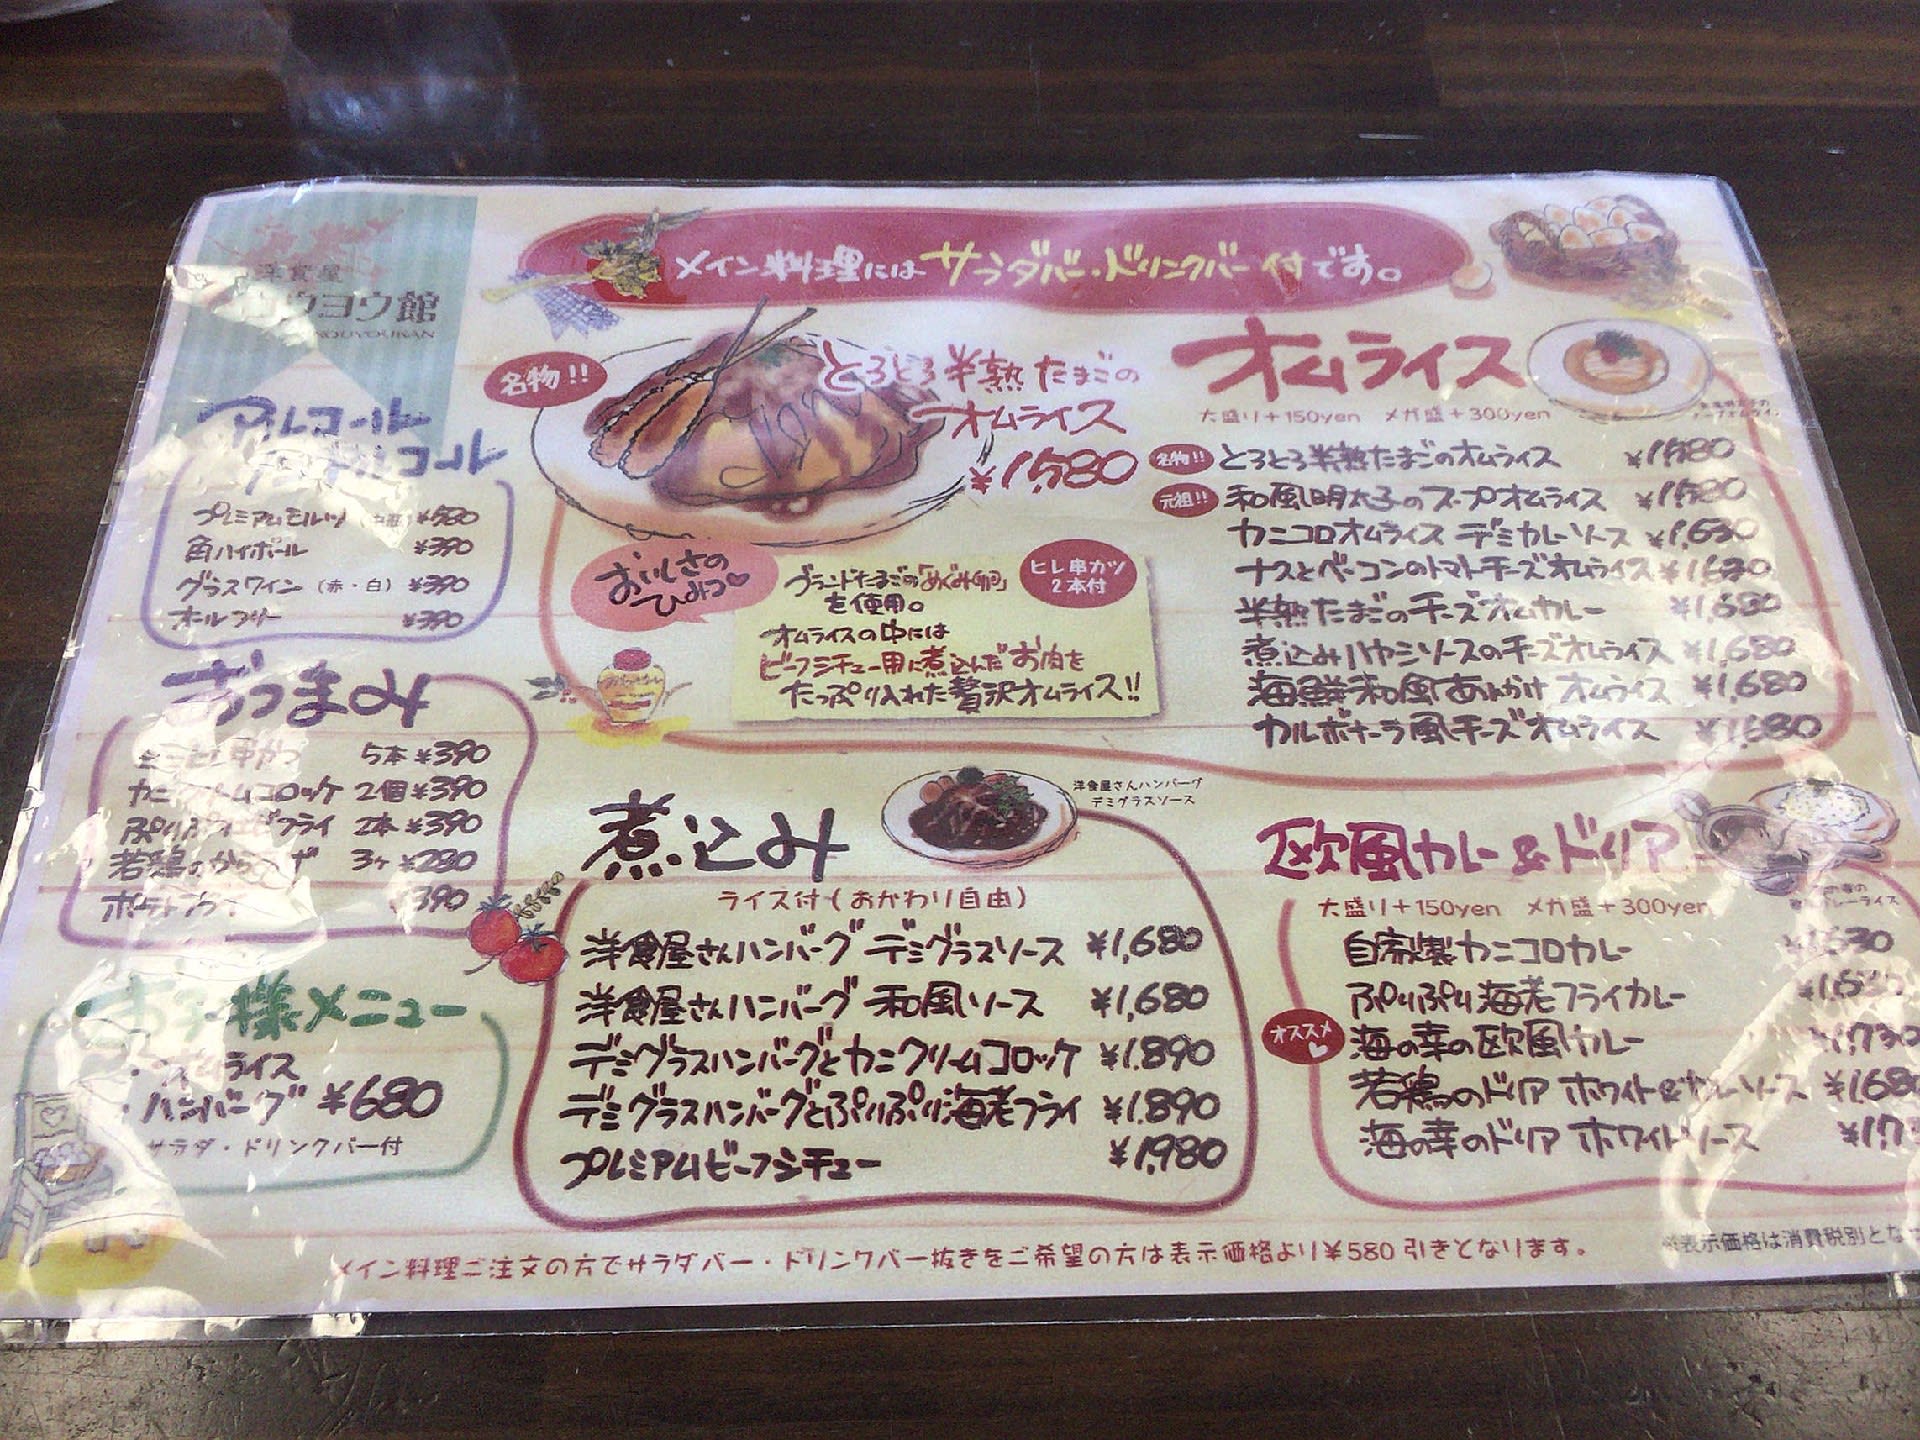 洋食屋
ウヨウ館
メイン料理にはサラダバー・ドリンクバー付です。
名物!!
とろとろ半熟たまごの
オムライス
¥1,580
おいしさの
ひみつ
ブランドたまごの「めぐみ卵」
を使用。
オムライスの中には
ビーフシチュー用に煮込んだお肉を
たっぷり入れた贅沢オムライス!!
ヒレ串カツ
2本付
オムライス
大盛り+150yen メガ盛+300yen
名物!! とろとろ半熟たまごのオムライス ¥1,580
元祖!! 和風明太子のスープオムライス ¥1,580
カニコロオムライス デミカレーソース ¥1,630
ナスとベーコンのトマトチーズオムライス ¥1,630
半熟たまごのチーズオムカレー ¥1,680
煮込みハヤシソースのチーズオムライス ¥1,680
海鮮和風あんかけ オムライス ¥1,680
カルボナーラ風チーズオムライス ¥1,680
アルコール
ノンアルコール
プレミアムモルツ ¥580
角ハイボール ¥390
グラスワイン (赤・白) ¥390
オールフリー ¥390
おつまみ
ミニヒレ串かつ 5本 ¥390
カニクリームコロッケ 2個 ¥390
ぷりぷりエビフライ 2本 ¥390
若鶏のからあげ 3ヶ ¥280
ポテトフライ ¥390
お子様メニュー
・オムライス
・ハンバーグ ¥680
サラダ・ドリンクバー付
煮込み
洋食屋さんハンバーグ
デミグラスソース
ライス付(おかわり自由)
洋食屋さんハンバーグ デミグラスソース ¥1,680
洋食屋さんハンバーグ 和風ソース ¥1,680
デミグラスハンバーグとカニクリームコロッケ ¥1.890
デミグラスハンバーグとぷりぷり海老フライ ¥1.890
プレミアムビーフシチュー ¥1,980
欧風カレー&ドリア
大盛り+150yen メガ盛+300yen
自家製カニコロカレー ¥1,630
ぷりぷり海老フライカレー ¥1,630
オススメ 海の幸の欧風カレー ¥1,730
若鶏のドリア ホワイト&カレーソース ¥1,680
海の幸のドリア ホワイトソース ¥1,73
メイン料理ご注文の方でサラダバー・ドリンクバー抜きをご希望の方は表示価格より¥580引きとなります。
※表示価格は消費税別とな